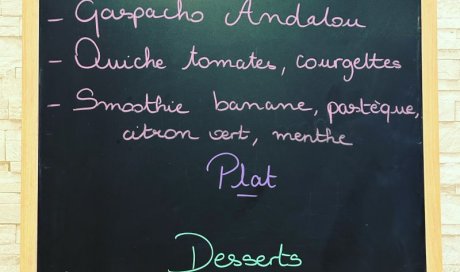 - Gaspacho Andalou
- Quiche tomates, courgettes
- Smoothie banane, pastèque,
citron vert, menthe
Plat
Desserts